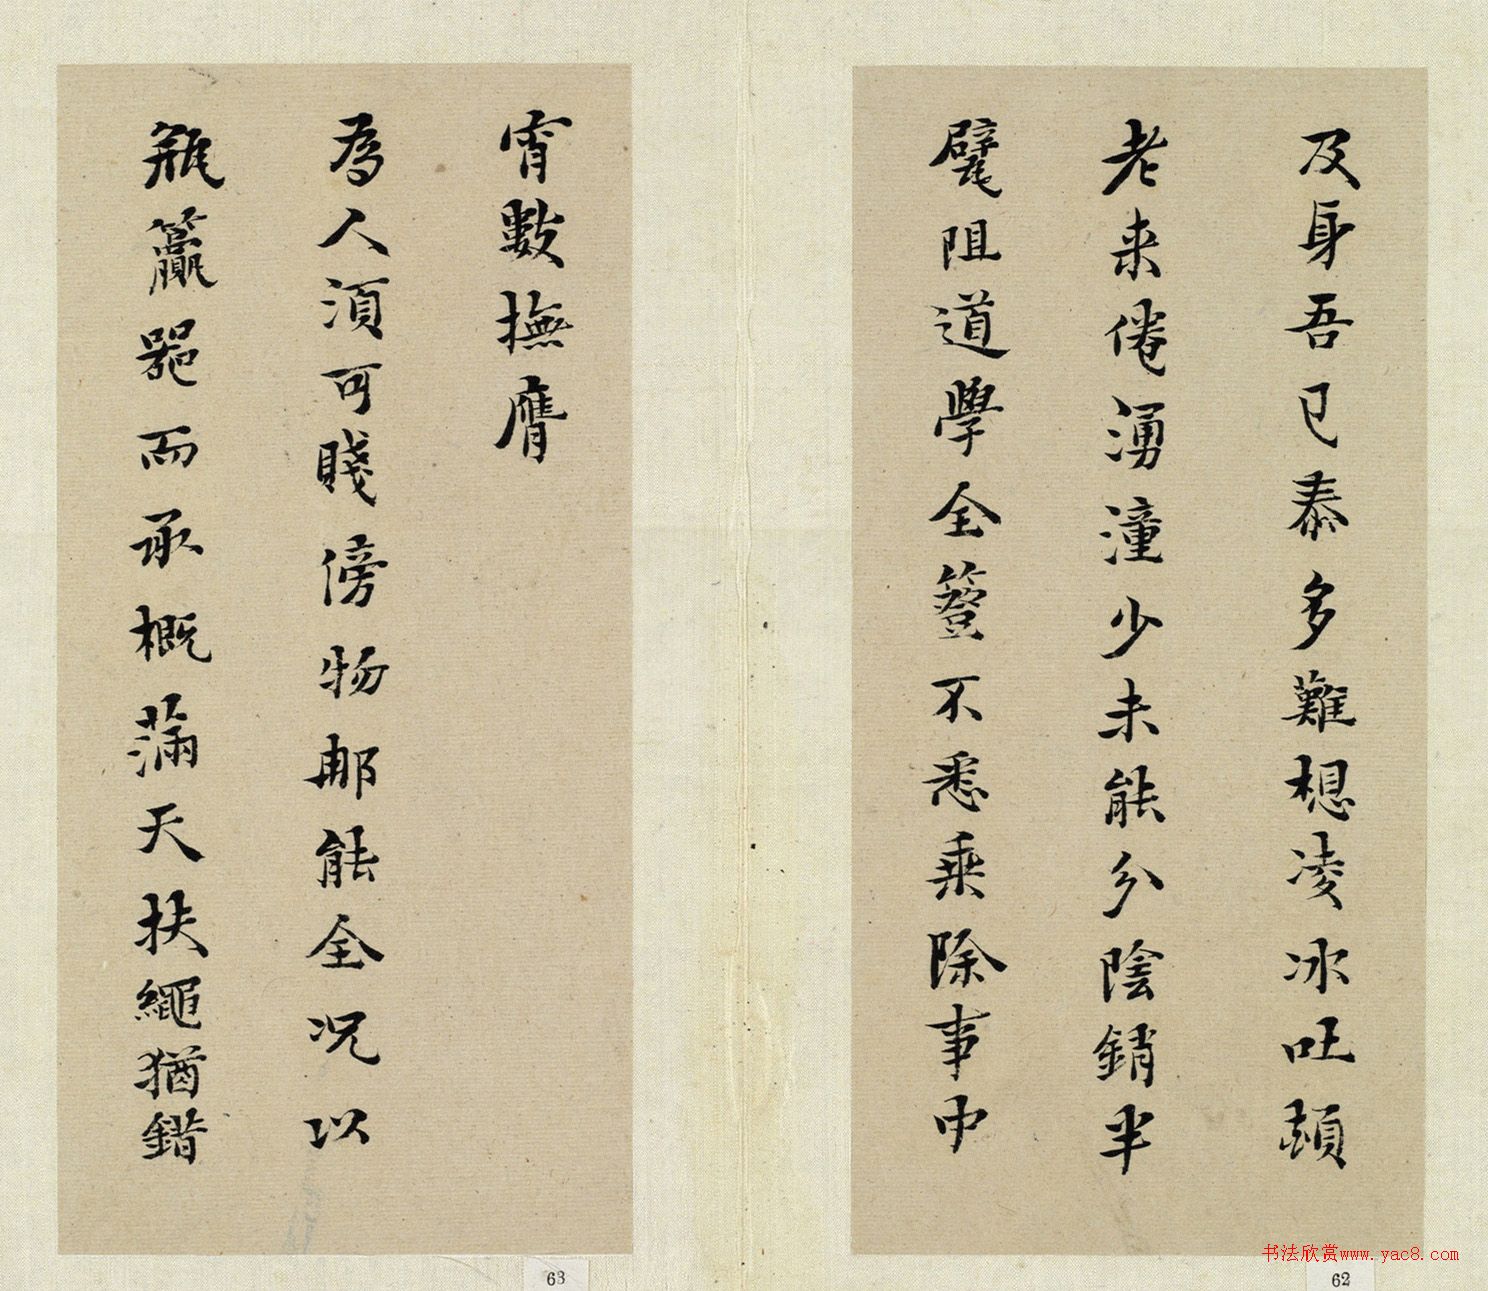 及身吾已泰多難想凌冰吐頸
老來倦湧潼少未能分陰銷半
躄阻道學全簦不悉乘除事中
宵數撫膺
為人須可賤傍物那能全況以
瓶籯器而承概滿天扶繩猶錯
63
62
书法欣赏www.yac8.com